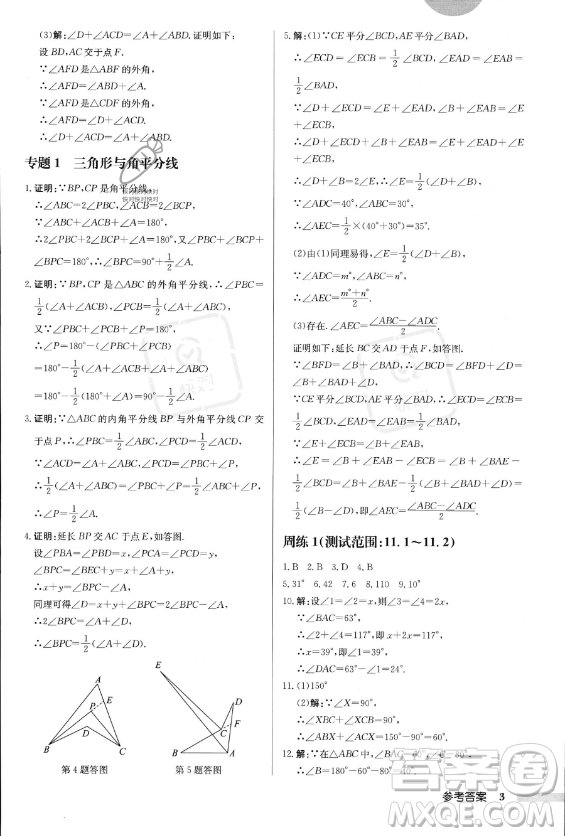 (3)解:∠D+∠ADC=∠A+∠ABD.证明如下:
设BD,AC交于点F.
∵∠AFD是△ABF的外角,
∴∠AFD=∠ABD+∠A.
∵∠AFD是△DFC的外角,
∴∠AFD=∠D+∠ADC.
∴∠D+∠ADC=∠A+∠ABD.
专题1 三角形与角平分线
1.证明:∵BP,CP是角平分线,
∴∠ABC=2∠PBC,∠ACB=2∠PCB.
∵∠ABC+∠ACB+∠A=180°,
∴2∠PBC+2∠PCB+∠A=180°.
∵∠PBC+∠PCB+∠BPC=180°,
∴2(180°-∠BPC)+∠A=180°.
∴∠BPC=90°+1/2∠A.
2.证明:∵BP,CP是△ABC的外角平分线,∴∠PBC=
1/2(∠A+∠ACB),∠PCB=1/2(∠A+∠ABC).
又∵∠BPC+∠PBC+∠PCB=180°,
∴∠BPC=180°-(∠PBC+∠PCB)
=180°-1/2(∠A+∠ACB+∠A+∠ABC)
=180°-1/2(180°+∠A)=90°-1/2∠A.
3.证明:∵△ABC的内角平分线BP与外角平分线CP交
于点P,∴∠PBC=1/2∠ABC,∠PCD=1/2(∠A+
∠ABC).∵∠PCD=∠P+∠PBC,
∴∠P=1/2∠A.
4.证明:延长BP交AC于点E,如答图.
设∠PBA=∠PBD=x,∠PCA=∠PCD=y.
∵∠BPC=∠BEC+y,∠BEC=∠A+x,
∴x+y=∠BPC-∠A.
同理可得∠BDC=∠BPC+x+y.
∴2∠BPC=∠A+∠BDC.
∴∠BPC=1/2(∠A+∠BDC).
A
E
P
D
B
C
第4题答图
D
F
C
E
B
A
第5题答图
5.解:(1)∵CE平分∠BCD,AE平分∠BAD,
∴∠ECD=∠ECB=1/2∠BCD,∠EAD=∠EAB=
1/2∠BAD.
∵∠D+∠ECD=∠E+∠EAD,∠B+∠EAB=
∠E+∠ECB,
∴∠D+∠ECD+∠B+∠EAB=∠E+∠EAD+
∠E+∠ECB.
∴∠D+∠B=2∠E.∴∠E=1/2(∠D+∠B).
∵∠ADC=40°,∠ABC=30°,
∴∠AEC=1/2×(40°+30°)=35°.
(2)由(1)同理易得,∠E=1/2(∠D+∠B).
∵∠ADC=m°,∠ABC=n°,
∴∠AEC=(m°+n°)/2.
(3)存在.∠AEC=(∠ABC-∠ADC)/2.
证明如下:延长BC交AD于点F,如答图.
∴∠BFD=∠B+∠BAD.
∴∠BCD=∠BFD+∠D=∠B+∠BAD+∠D.
∵CE平分∠BCD,AE平分∠BAD,
∴∠ECD=∠ECB=1/2∠BCD,∠EAD=∠EAB=
1/2∠BAD.
∵∠E+∠ECB=∠B+∠EAB,
∴∠E=∠B+∠EAB-∠ECB=∠B+∠EAB-
1/2∠BCD=∠B+∠EAB-1/2(∠B+∠BAD+
∠D)=1/2(∠B-∠D),即∠AEC=(∠ABC-∠ADC)/2.
周练1(测试范围:11.1~11.2)
1.B 2.B 3.D 4.C
5.31° 6.42 7.6 8.120° 9.60°
10.解:设∠1=∠2=x,则∠3=∠4=2x.
∵∠BAC=63°,
∴∠2+∠4=117°,即x+2x=117°.
∴x=39°,即∠1=39°.
∴∠DAC=63°-39°=24°.
11.(1)150°
(2)解:∵∠X=90°,
∴∠XBC+∠XCB=90°.
∴∠ABX+∠ACX=150°-90°=60°.
12.解:∵在△ABC中,
参考答案 3